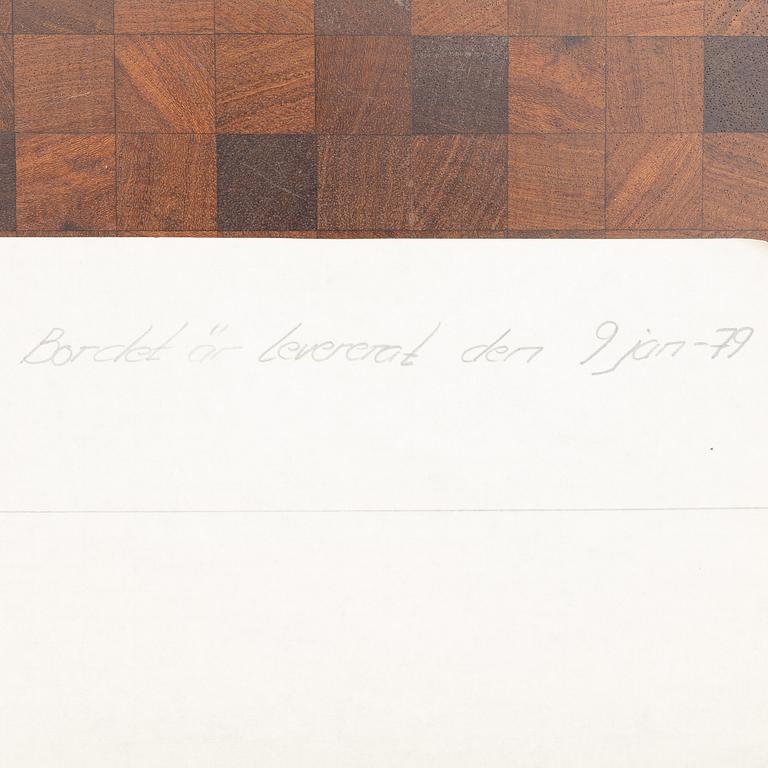 Bordet är levererat den 9 jan-79